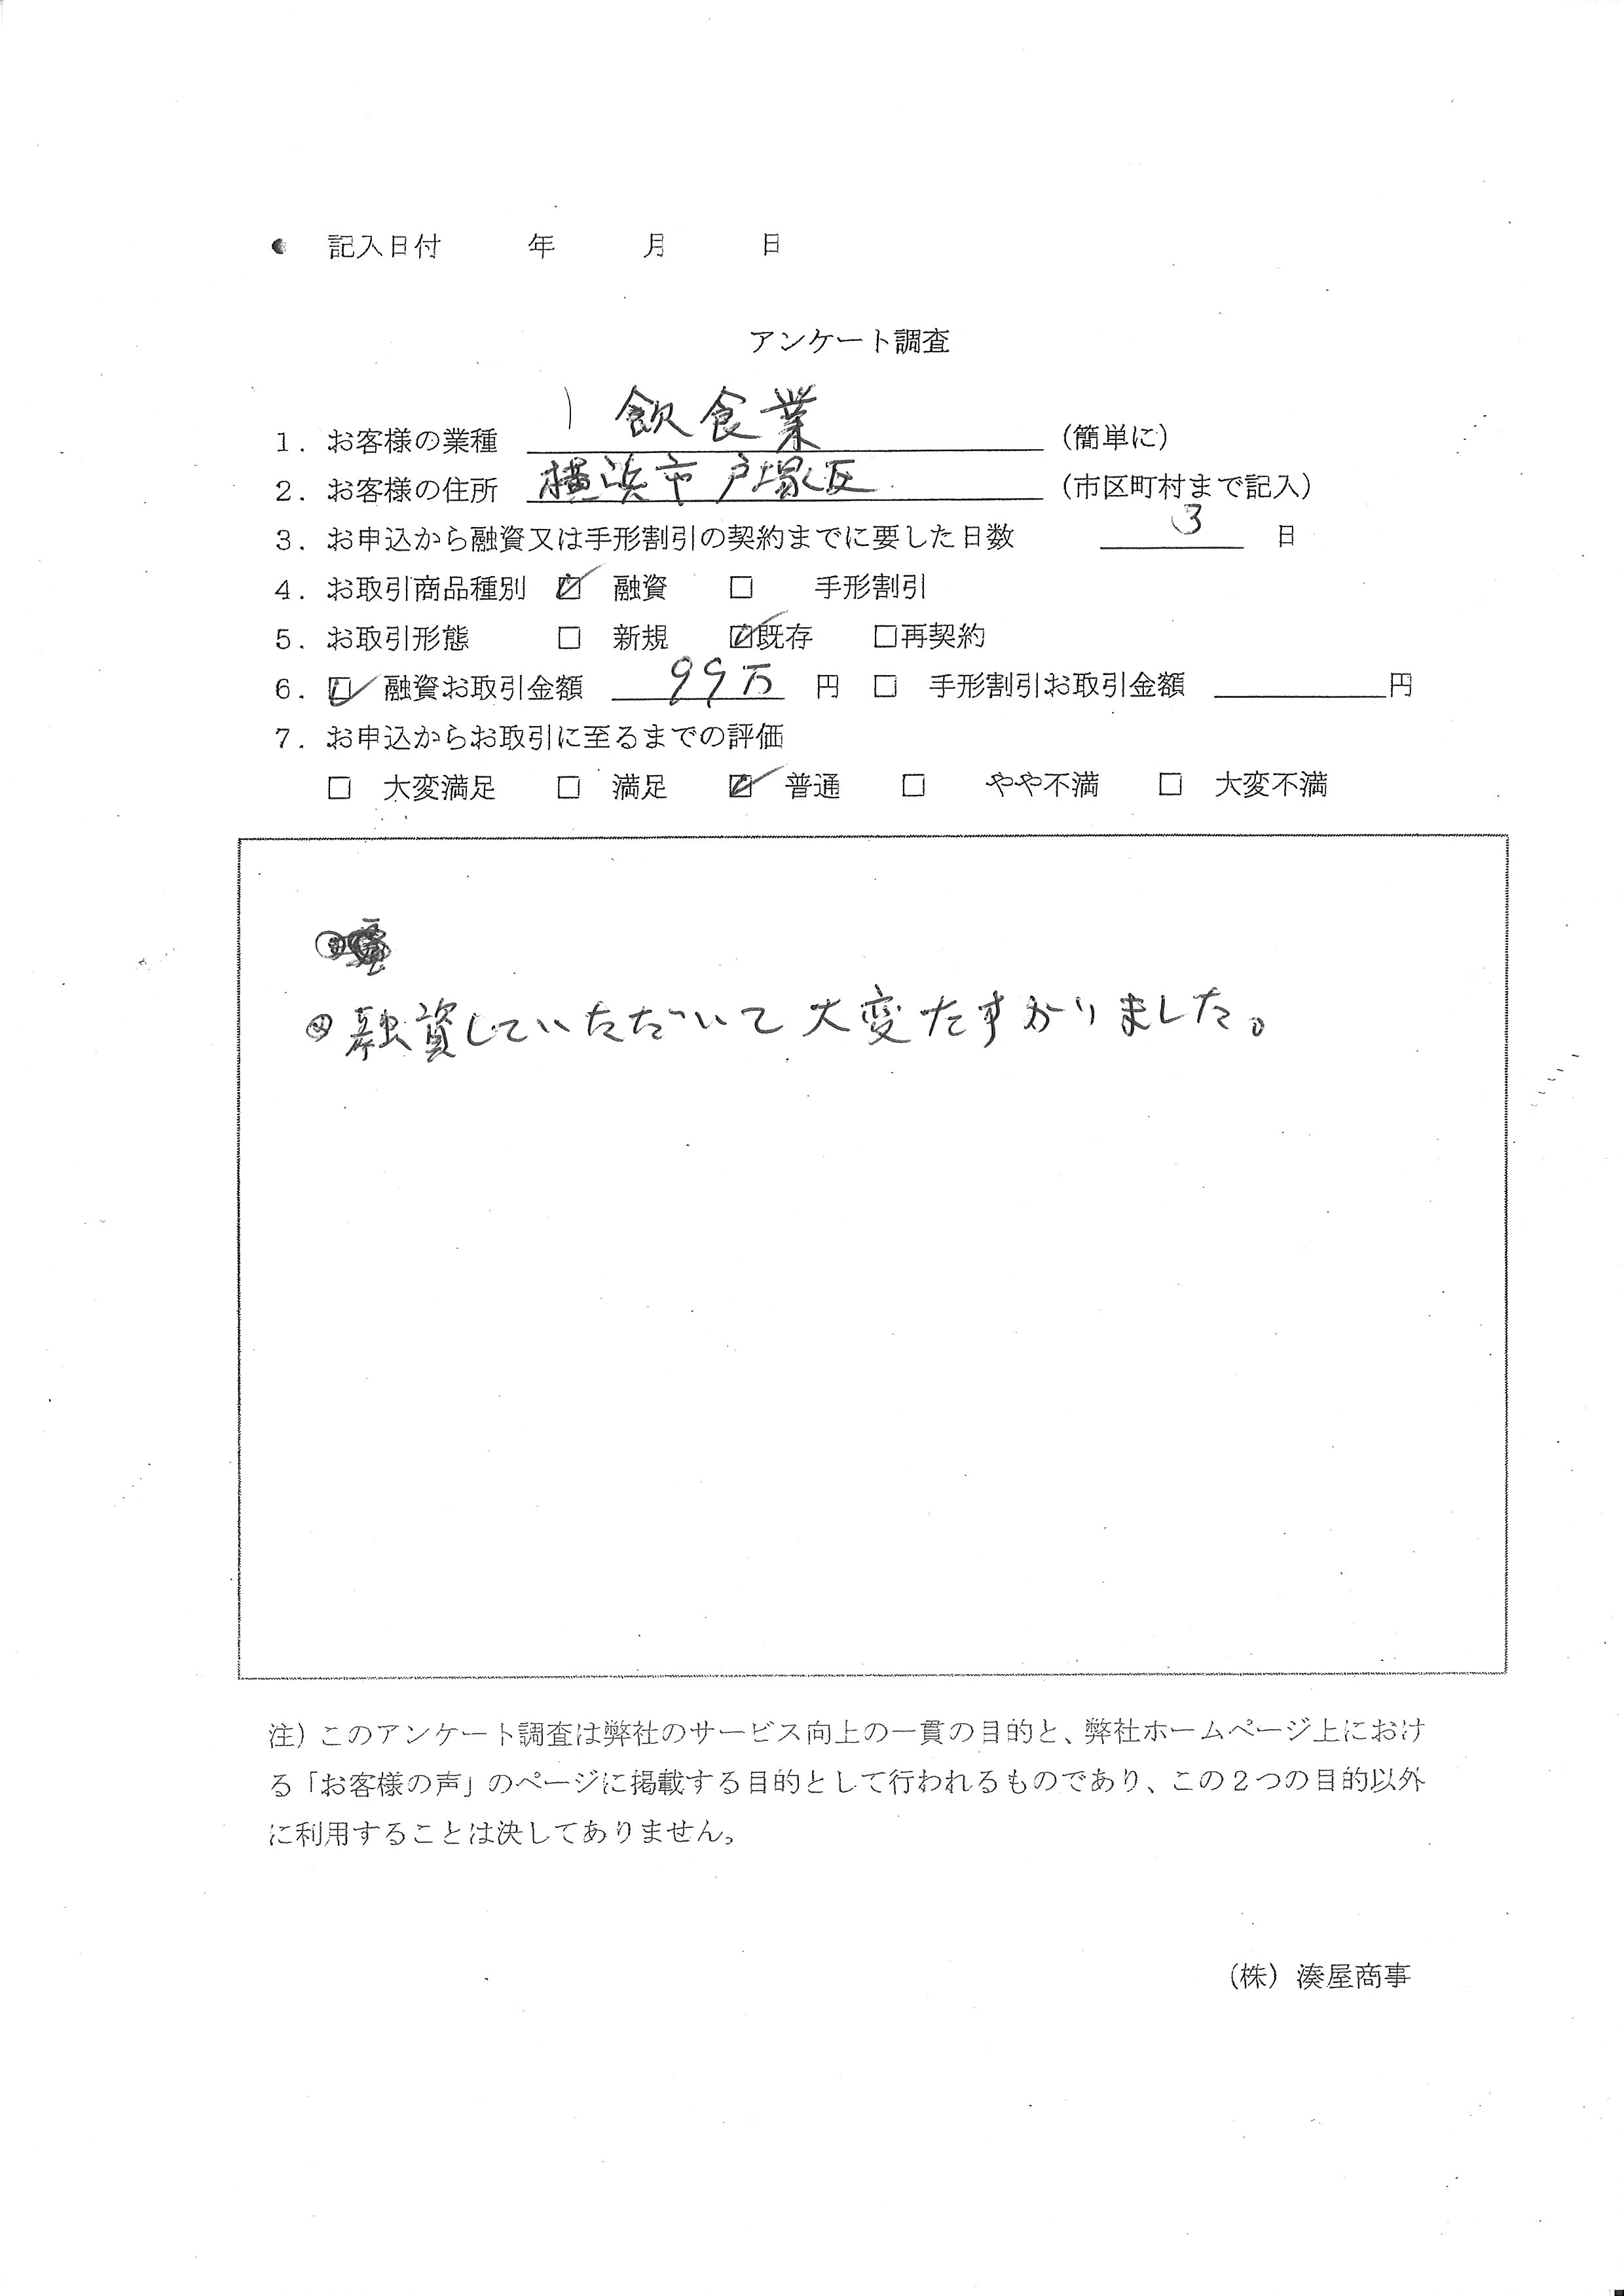 ● 記入日付 年 月 日
アンケート調査
1. お客様の業種 飲食業 (簡単に)
2. お客様の住所 横浜市戸塚区 (市区町村まで記入)
3. お申込から融資又は手形割引の契約までに要した日数 3 日
4. お取引商品種別 ☑ 融資 □ 手形割引
5. お取引形態 □ 新規 ☑既存 □再契約
6. ☑ 融資お取引金額 99万 円 □ 手形割引お取引金額 円
7. お申込からお取引に至るまでの評価
□ 大変満足 □ 満足 ☑ 普通 □ やや不満 □ 大変不満
融資していただいて大変たすかりました。
注)このアンケート調査は弊社のサービス向上の一貫の目的と、弊社ホームページ上におけ
る「お客様の声」のページに掲載する目的として行われるものであり、この2つの目的以外
に利用することは決してありません。
(株)湊屋商事